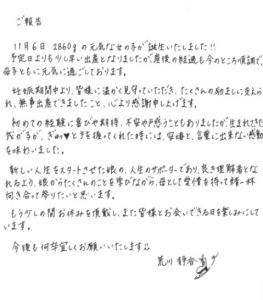 ご報告
11月6日 2860gの元気な女の子が誕生いたしました!!
予定日よりも少し早い出産となりましたが産後の経過も今のところ順調で、
母子ともに元気に過ごしております。
妊娠期間中より、皆様に温かく見守っていただき、たくさんの励ましに支えら
れ、無事出産できましたこと、心より感謝申し上げます。
初めての経験に喜びや期待、不安や戸惑うこともありましたが生まれてきた
我が子が、ぎゅっ♥と手を握ってくれた時には、安堵と、言葉に出来ない感動
を味わいました。
新しい人生をスタートさせた娘の、人生のサポーターであり、良き理解者とな
れるよう、娘からたくさんのことを学びながら、母として愛情を持って精一杯
向き合って参りたいと思います。
もう少しの間お休みを頂戴し、また皆様とお会いできる日を楽しみにして
います。
今後も何卒宜しくお願いいたします!!
荒川静香